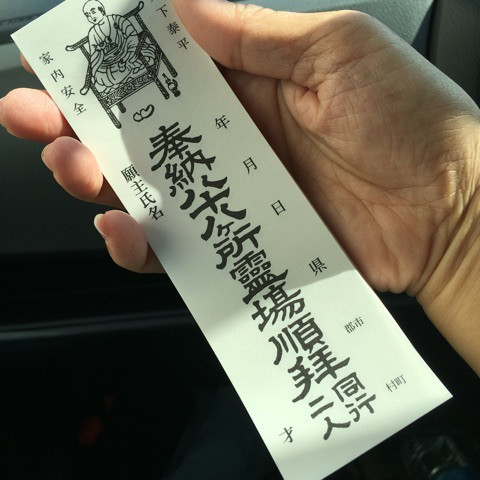 下泰平
家内安全
年 月 日
奉納八十八ヶ所霊場順拝
同行二人
願主氏名
県
郡市
村町
才